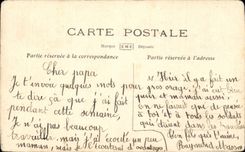 CARTE POSTALE
Marque Déposée
Partie réservée à la correspondance
Partie réservée à l'adresse
Cher papa
Je t'envoie quelques mots pour
te dire ça que j'ai fait
pendant cette semaine,
Je n'ai pas beaucoup
travaillé mais j'ai écouté un peu
maman, mais je
Hier il y a fait un
gros orage; J'ai eut bien
peur et maman aussi.
On ne savait que de
à toi et à tous les soldats
qui doivent
Ton fils qui t'aime,
Raymond